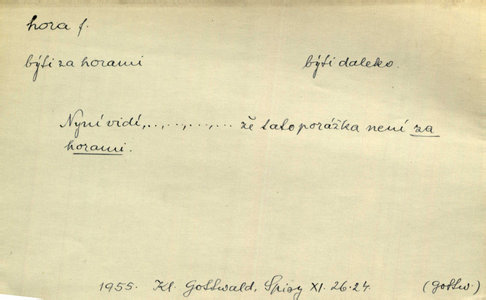 hora f.
býti za horami býti daleko.
Nyní vidí,..,...,...,... že tato porážka není za
horami.
1955. Kl. Gottwald, Spisy XI. 26.24 (Gottw.)